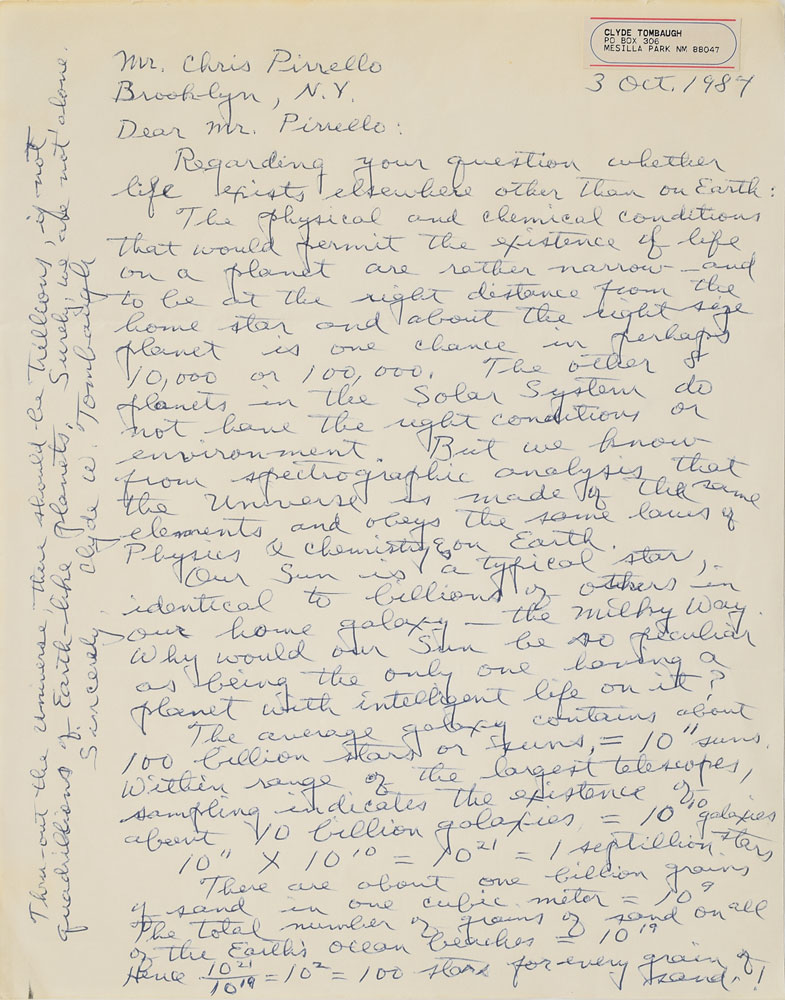 CLYDE TOMBAUGH
PO BOX 306
MESILLA PARK NM 88047
3 Oct. 1987
Mr. Chris Pirrello
Brooklyn, N.Y.
Dear Mr. Pirrello:
Regarding your question whether
life exists elsewhere other than on Earth:
The physical and chemical conditions
that would permit the existence of life
on a planet are rather narrow — and
to be at the right distance from the
home star and about the right size
planet is one chance in perhaps
10,000 or 100,000. The other 8
planets in the Solar System do
not have the right conditions or
environment. But we know
from spectrographic analysis that
the Universe is made of the same
elements and obeys the same laws of
Physics & chemistry as on Earth.
Our Sun is a typical star,
identical to billions of others in
our home galaxy — the Milky Way.
Why would our Sun be so peculiar
as being the only one having a
planet with intelligent life on it?
The average galaxy contains about
100 billion stars or suns, = 10¹¹ suns.
Within range of the largest telescopes,
sampling indicates the existence of
about 10 billion galaxies = 10¹⁰ galaxies
10¹¹ X 10¹⁰ = 10²¹ = 1 septillion stars
There are about one billion grains
of sand in one cubic meter = 10⁹
The total number of grains of sand on all
of the Earth's ocean beaches = 10¹⁹
Hence 10²¹/10¹⁹ = 10² = 100 stars for every grain of
sand!
Thru-out the Universe there should be trillions, if not
quadrillions of Earth-like planets. Surely, we are not alone.
Sincerely, Clyde W. Tombaugh